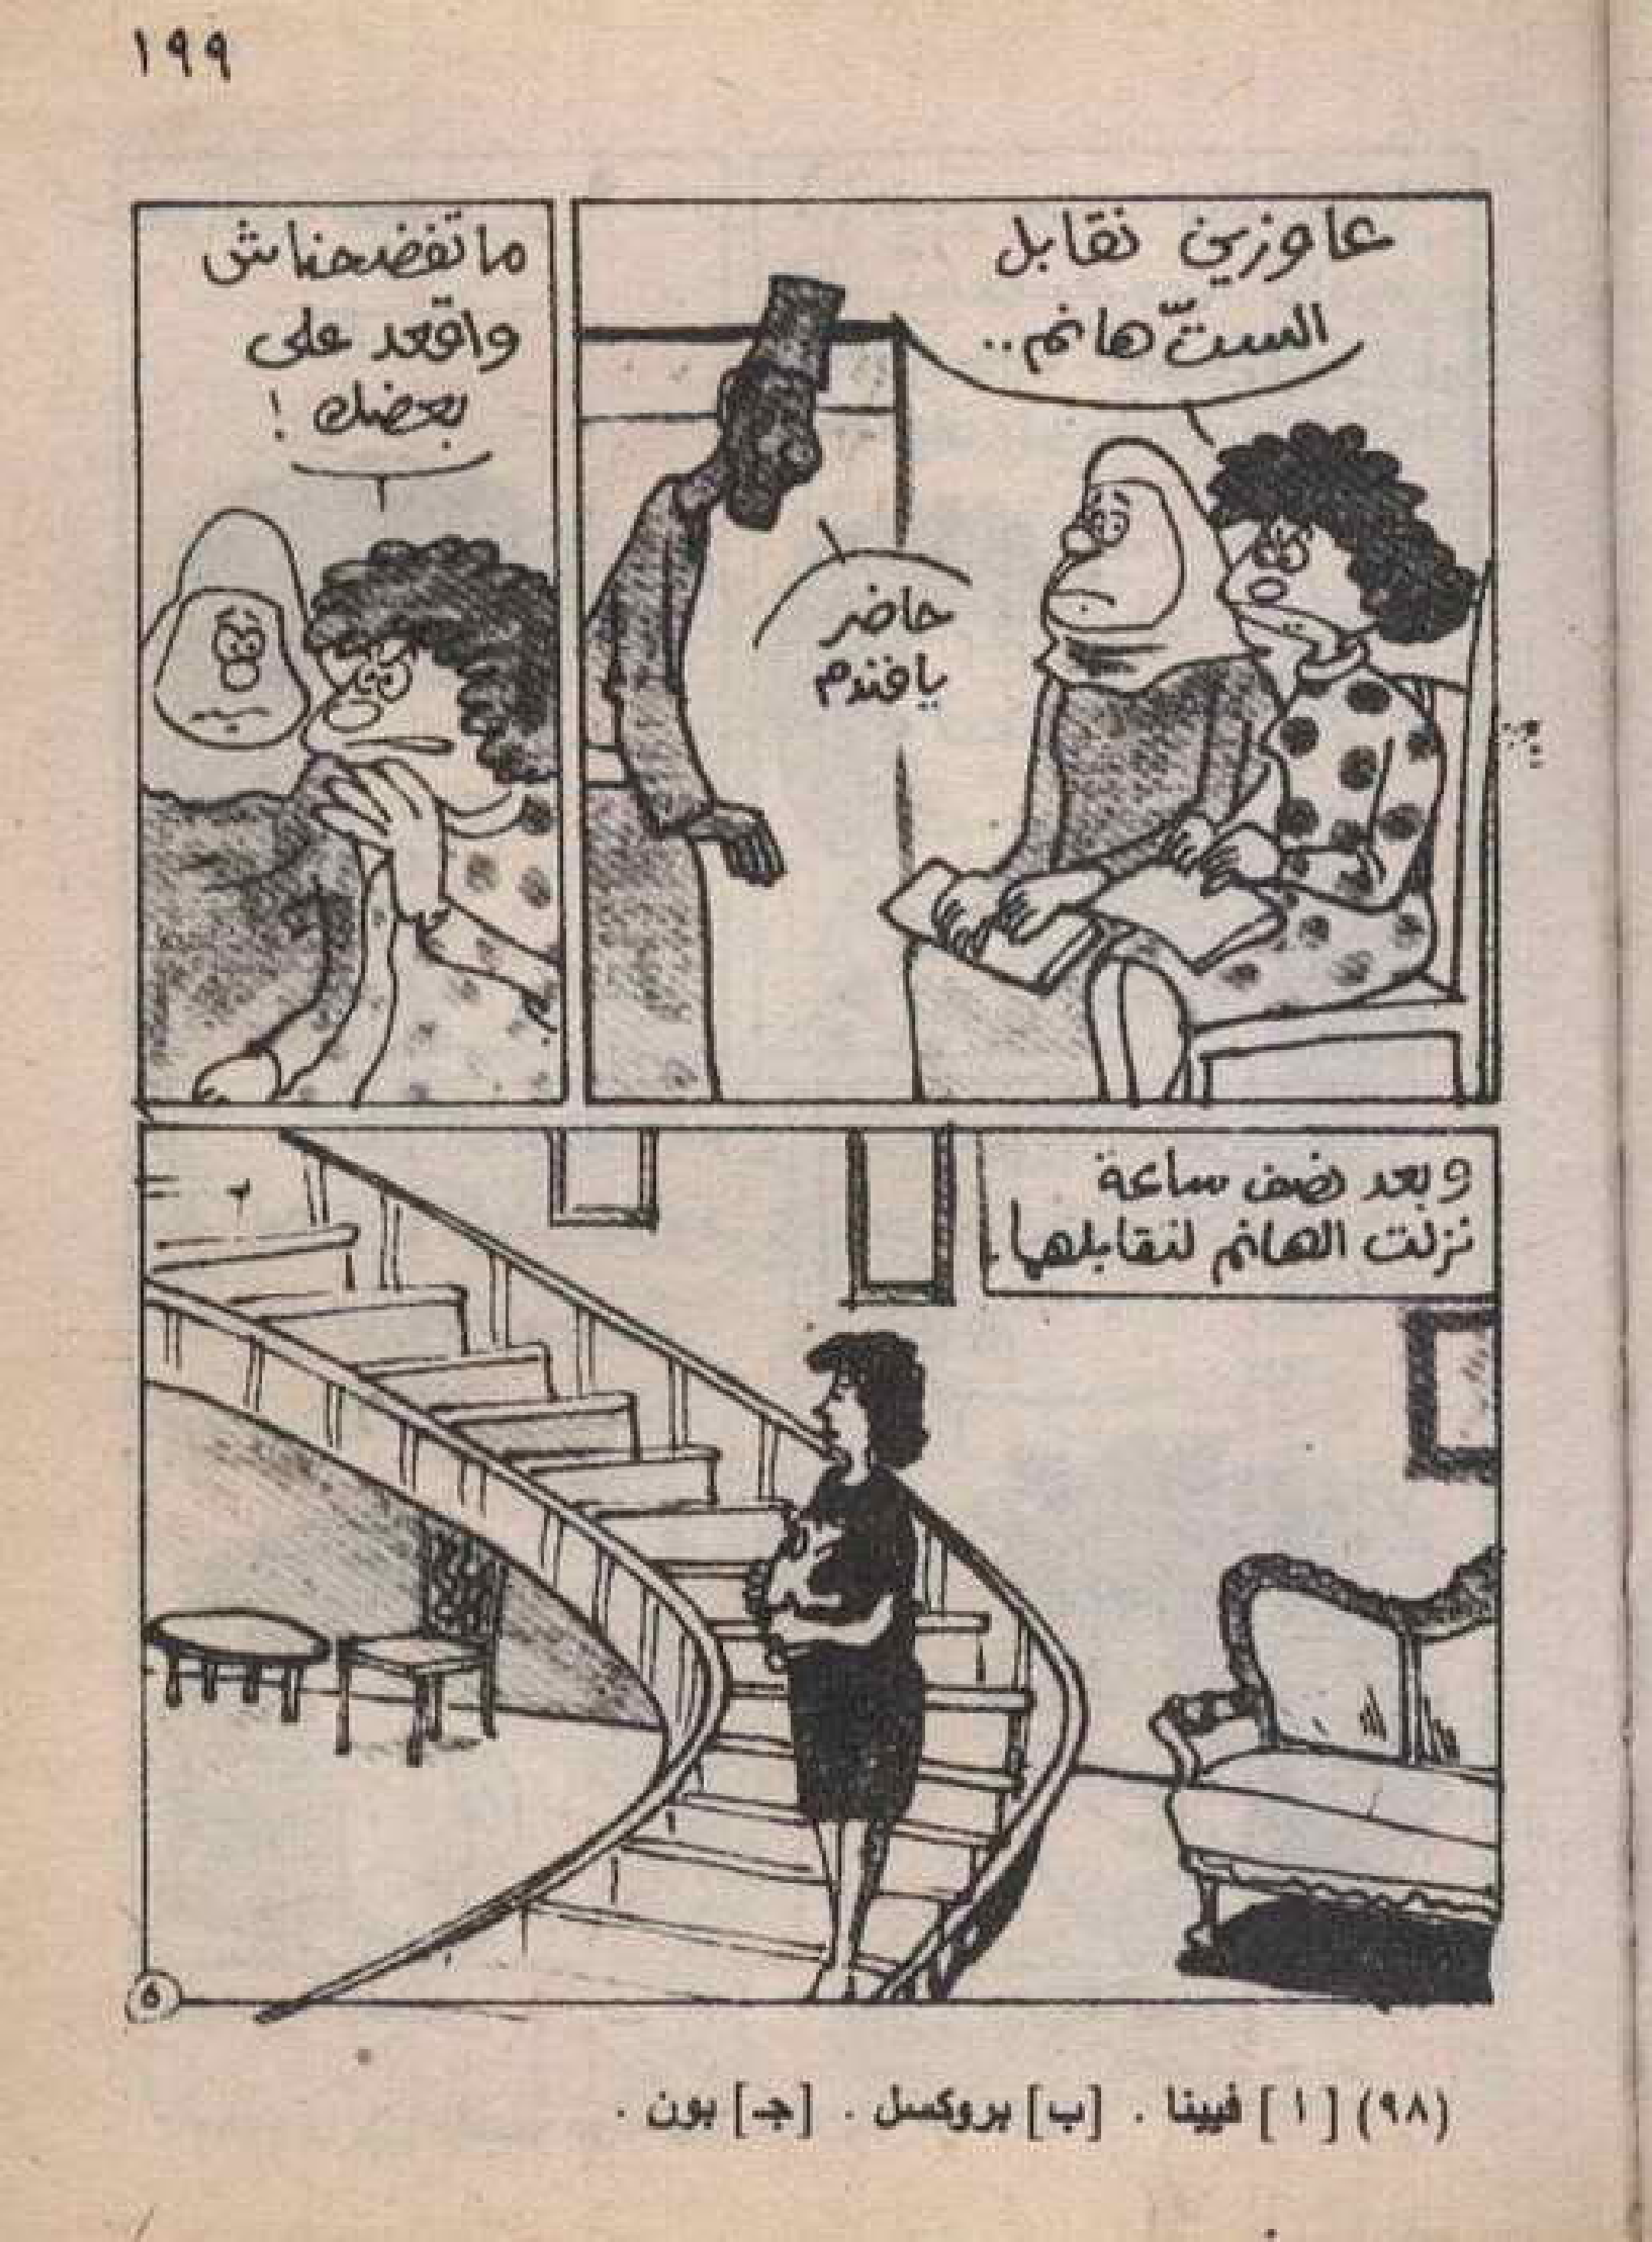 ١٩٩
عاوزين نقابل
الستّ هانم..
حاضر
يافندم
ماتفضحناش
واقعد على
بعضك !
وبعد نصف ساعة
نزلت الهانم لتقابلهما.
٥
(٩٨) [ ا ] فيينا . [ب] بروكسل . [جـ] بون .